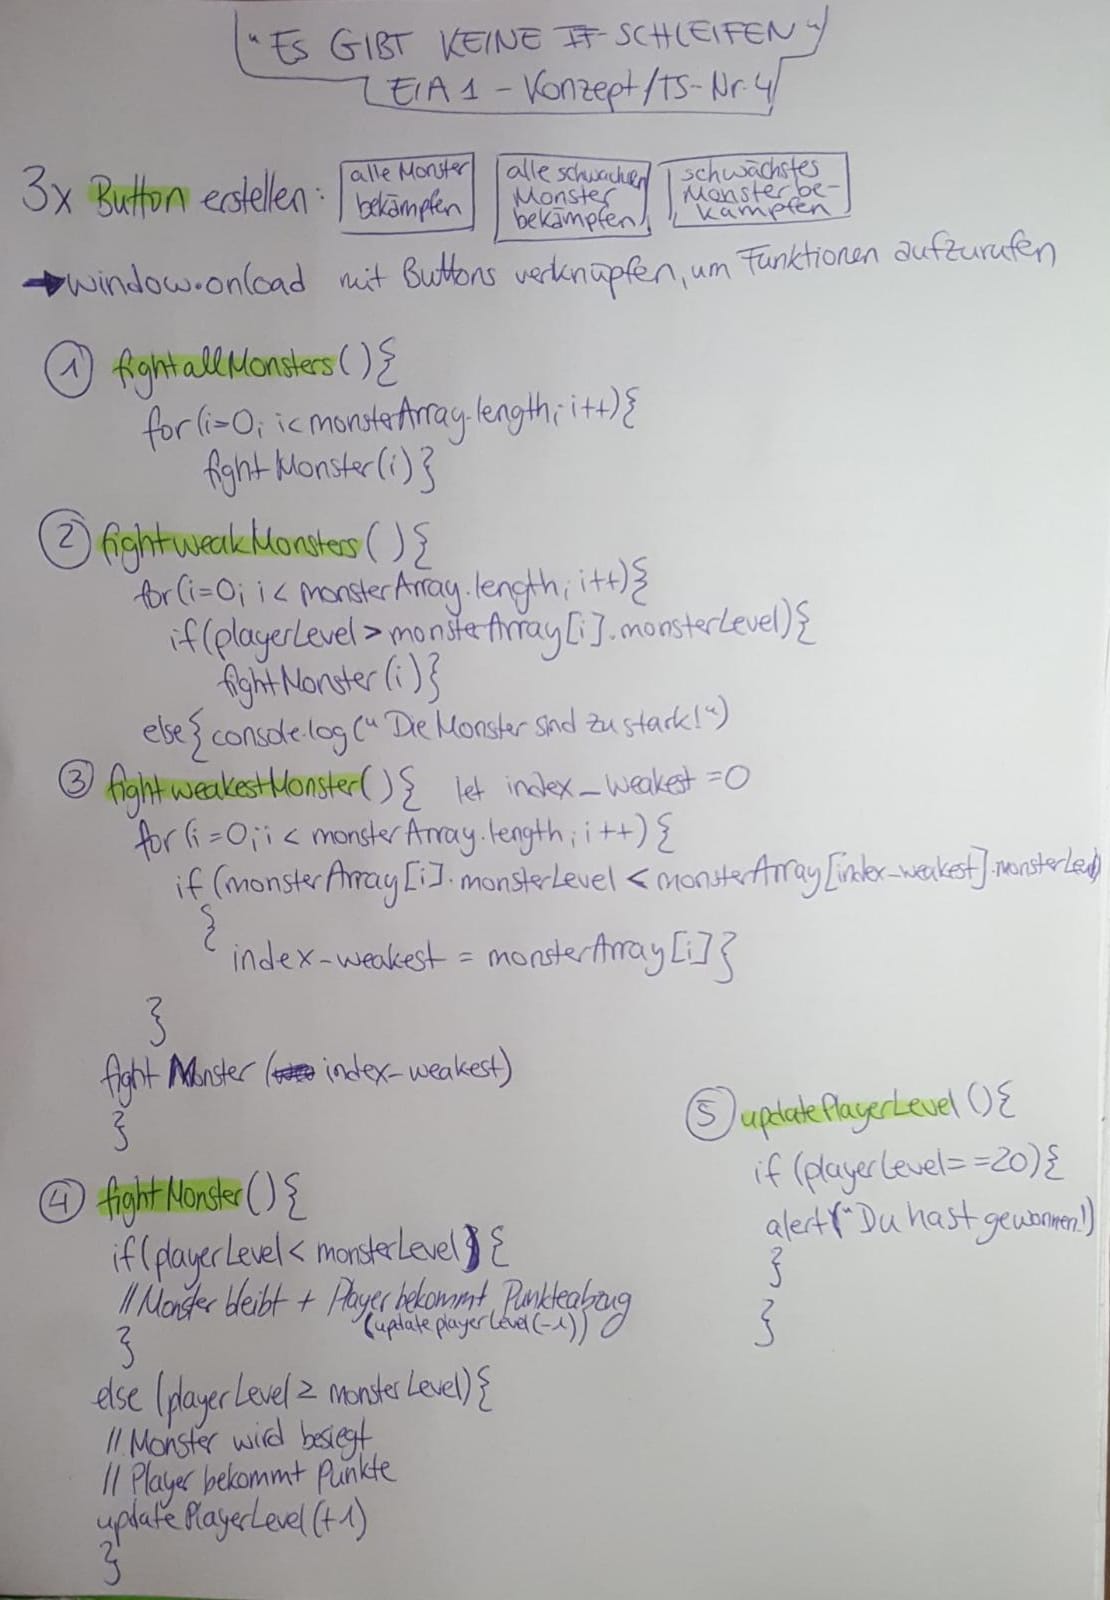 "ES GIBT KEINE IF-SCHLEIFEN"
EIA 1 - Konzept/TS-Nr.4
3x Button erstellen:
alle Monster
bekämpfen
alle schwachen
Monster
bekämpfen
schwächstes
Monster be-
kämpfen
→window.onload mit Buttons verknüpfen, um Funktionen aufzurufen
① fightallMonsters(){
for(i=0; i<monsterArray.length; i++){
fightMonster(i)}
② fightweakMonsters(){
for(i=0; i < monsterArray.length; i++){
if(playerLevel > monsterArray[i].monsterLevel){
fightMonster(i)}
else{console.log("Die Monster sind zu stark!")
③ fightweakestMonster(){ let index_weakest =0
for(i=0; i < monsterArray.length; i++){
if (monsterArray[i].monsterLevel < monsterArray[index-weakest].monsterLevel)
{
index-weakest = monsterArray[i]}
}
fight Monster (index-weakest)
}
④ fightMonster(){
if(playerLevel < monsterLevel){
//Monster bleibt + Player bekommt Punkteabzug
(updateplayerLevel(-1))
}
else (playerLevel ≥ monsterLevel){
// Monster wird besiegt
// Player bekommt Punkte
updatePlayerLevel(+1)
}
⑤ updatePlayerLevel(){
if (playerLevel==20){
alert("Du hast gewonnen!)
}
}